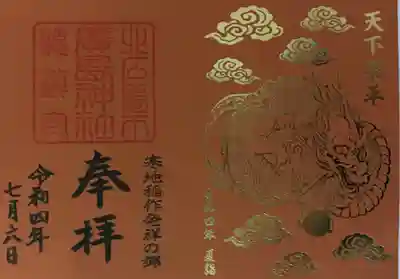 天下
令和四年 夏詣
寒地稲作発祥の郷
奉拝
令和四年
七月六日
北広島市
廣島神社